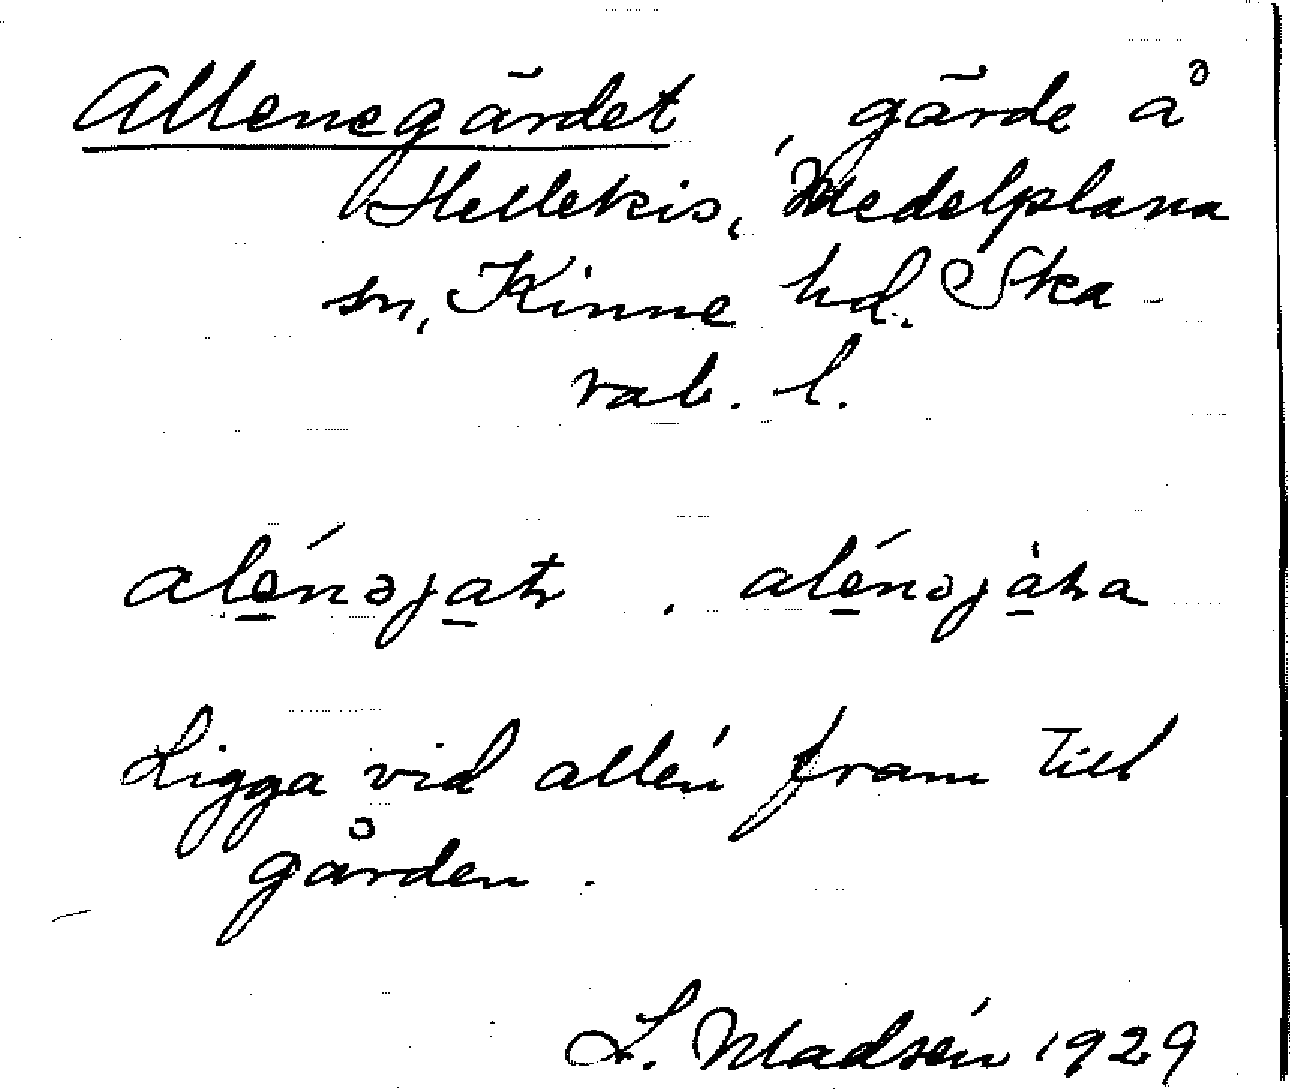 Allenegärdet, gärde å
Hellekis, Medelplana
sn, Kinne hd. Ska-
rab. l.
alénəjat . alénəjáta
Ligga vid allén fram till
gården.
L. Madsén 1929